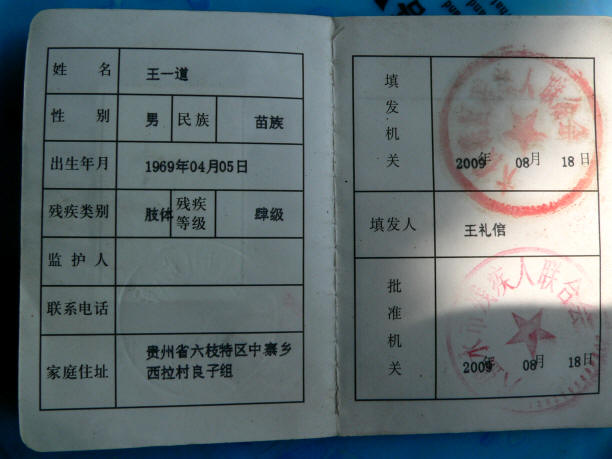 姓名 王一道
性别 男 民族 苗族
出生年月 1969年04月05日
残疾类别 肢体 残疾等级 肆级
监护人
联系电话
家庭住址 贵州省六枝特区中寨乡
西拉村良子组
填发机关
2009年 08月 18日
填发人 王礼倌
批准机关
残疾人联合会
2009年 08月 18日